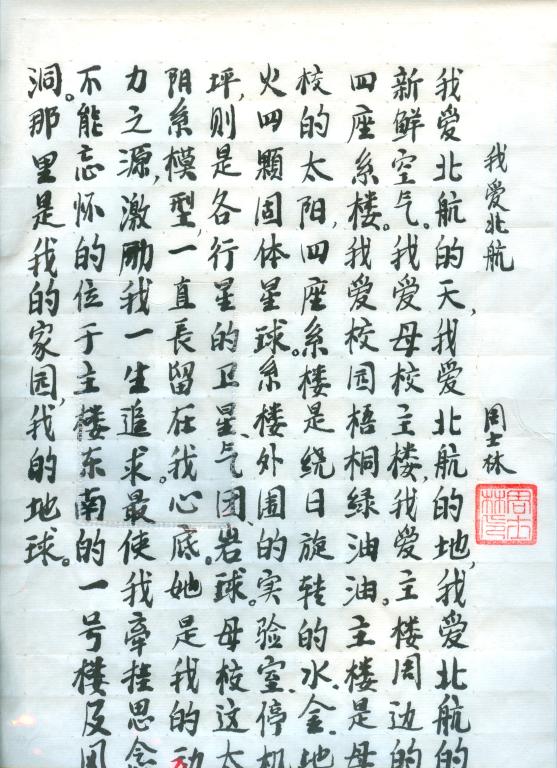 我爱北航
周士林
我爱北航的天，我爱北航的地，我爱北航的
新鲜空气。我爱母校主楼，我爱主楼周边的
四座系楼。我爱校园梧桐緑油油。主楼是母
校的太阳，四座系楼是绕日旋转的水、金、地
火四颗固体星球。系楼外围的实验室、停机
坪，则是各行星的卫星、气团、岩球。母校这太
阴系模型，一直長留在我心底。她是我的动
力之源，激励我一生追求。最使我牵挂思念
不能忘怀的位于主楼东南的一号楼及风
洞。那里是我的家园，我的地球。